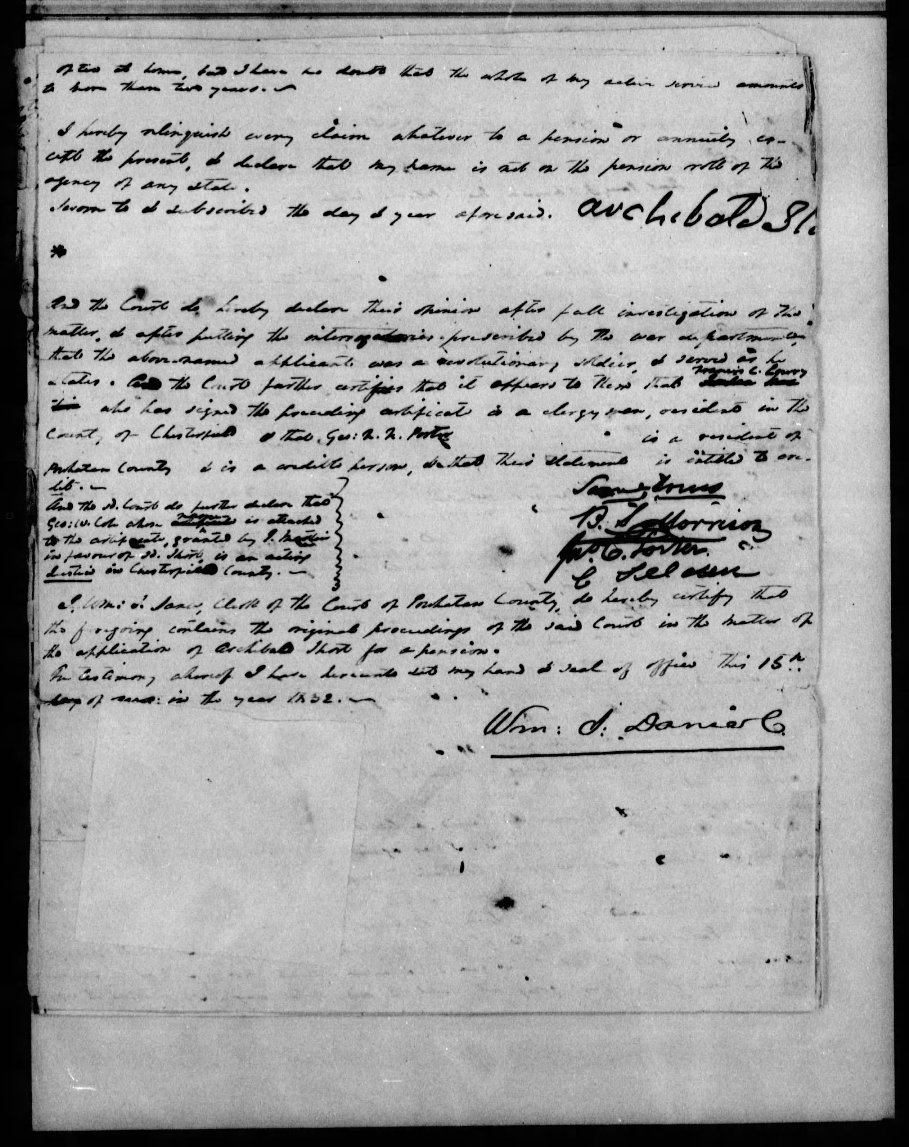 often at home, but I have no doubt that the whole of my active service amounts
to more than two years.
I hereby relinquish every claim whatever to a pension or annuity ex-
cept the present, & declare that my name is not on the pension roll of the
agency of any state.
Sworn to & subscribed the day & year aforesaid. archebald Sh
*
And the Court do hereby declare their opinion after full investigation of the
matter, & after putting the interrogatories prescribed by the war department
that the above named applicant was a revolutionary soldier, & served as he
states. And the Court further certifies that it appears to them that Francis C. Lowry
who has signed the preceding certificate is a clergyman, resident in the
County of Chesterfield & that Geo: N. N. Porter is a resident of
Powhatan County & is a credible person, & that their statement is intitled to cre-
dit.
And the sd. Court do further declare that
Geo: W. Cole whose name is attached
to the certificate, granted by J. Martin
in favour of A. Short, is an acting
Justice in Chesterfield County.
B. L. Morrison
C Selden
I, Wm: S: Dance, Clerk of the Court of Powhatan County, do hereby certify that
the foregoing contains the original proceedings of the said Court in the matter of
the application of Archibald Short for a pension.
In testimony whereof I have hereunto set my hand & seal of office this 15th
day of in the year 1832.
Wm: S: Dance C